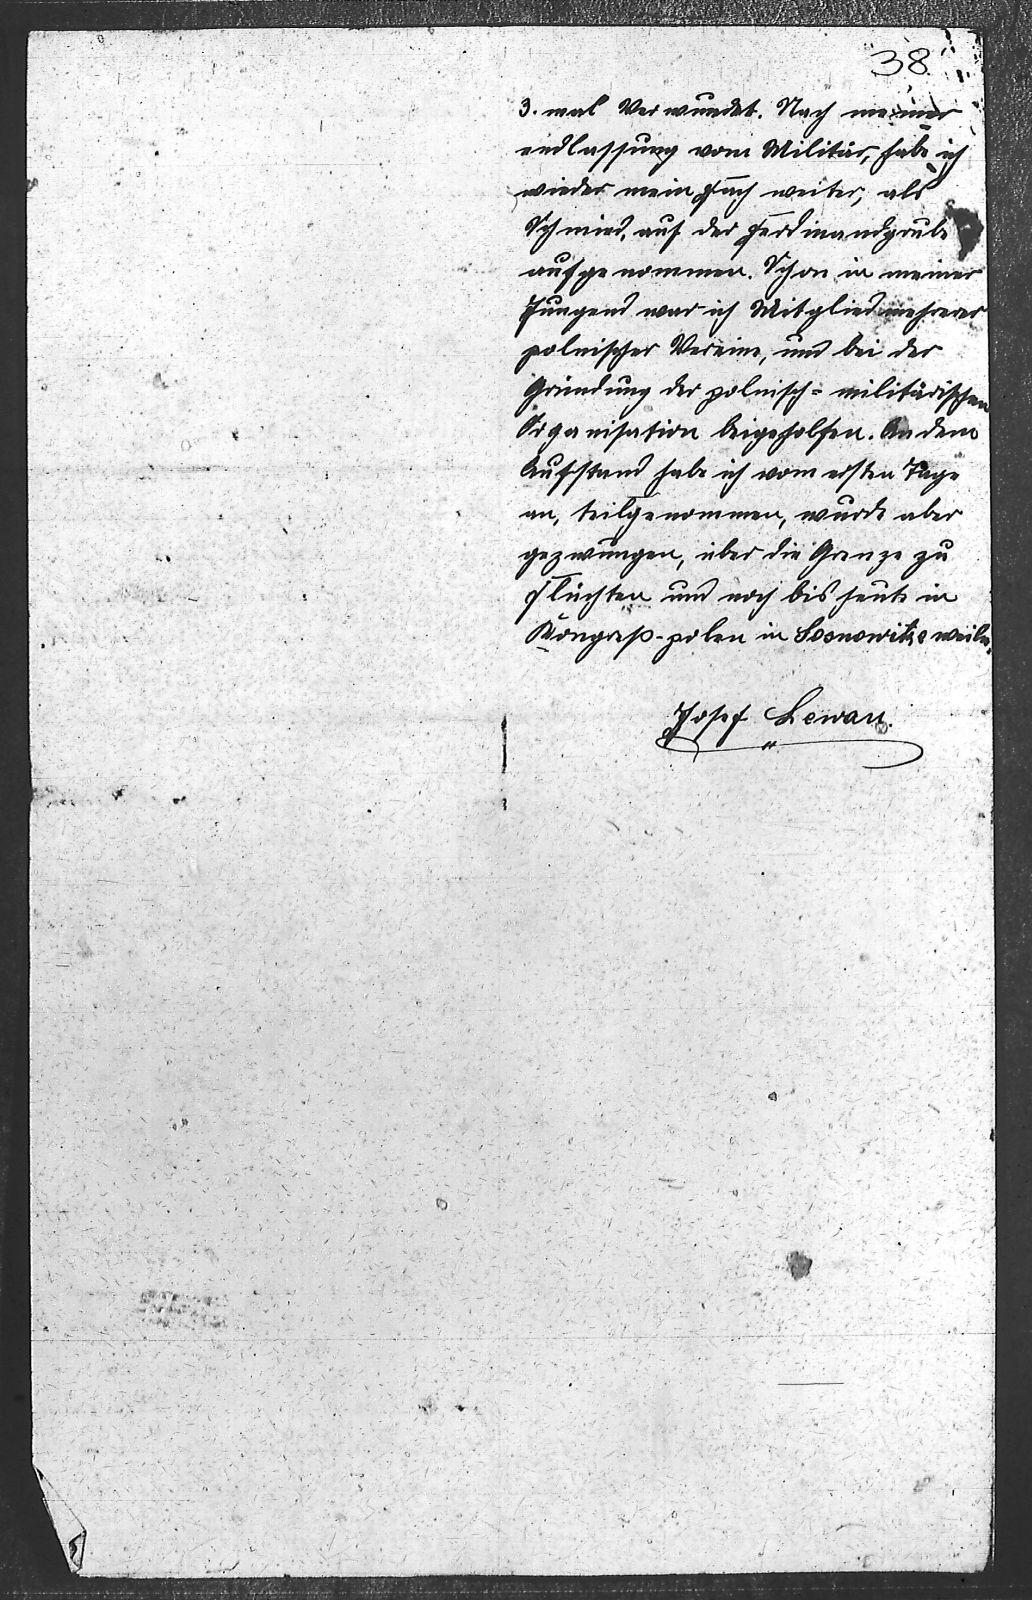 38.
3. mal Verwundet. Nach meiner
endlassung vom Militär, habe ich
wieder mein Fach weiter, als
Schmied, auf der Ferdinandgrube
aufgenommen. Schon in meiner
Jungend war ich Mitglied mehrerer
polnischer Vereine, und bei der
Gründung der polnisch= militärischen
Organisation beigeholfen. An dem
Aufstand habe ich vom ersten Tage
an, teilgenommen, wurde aber
gezwungen, über die Grenze zu
flüchten und noch bis heute in
Kongreß-polen in Sosnowitze weile.
Josef Lewan.